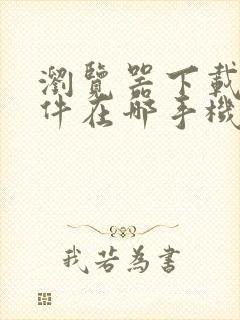 瀏覽器下載
件在哪手機
我若為書